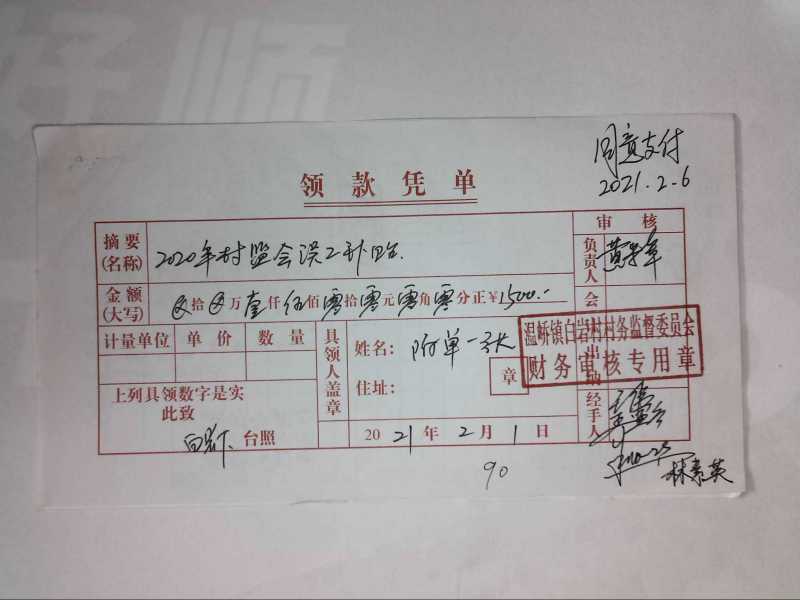 好顺
同意支付
2021.2.6
领款凭单
摘要(名称) 2020年村监会误工补贴. 审核
金额(大写) ⊗拾⊗万壹仟伍佰零拾零元零角零分正¥1500.- 负责人
会
计量单位 单价 数量 具领人盖章 姓名: 附单一张
温峤镇白岩村村务监督委员会
财务审核专用章
出
章
住址:
上列具领数字是实
此致
台照
2021年2月1日
经手人
90
林素英